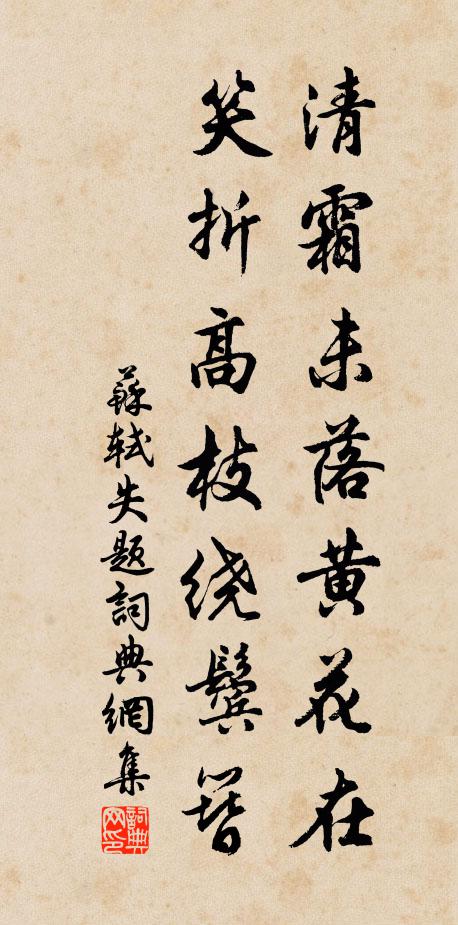 清霜未落黄花在
笑折高枝绕鬓簪
蘇軾失题詞典網集
詞典网印